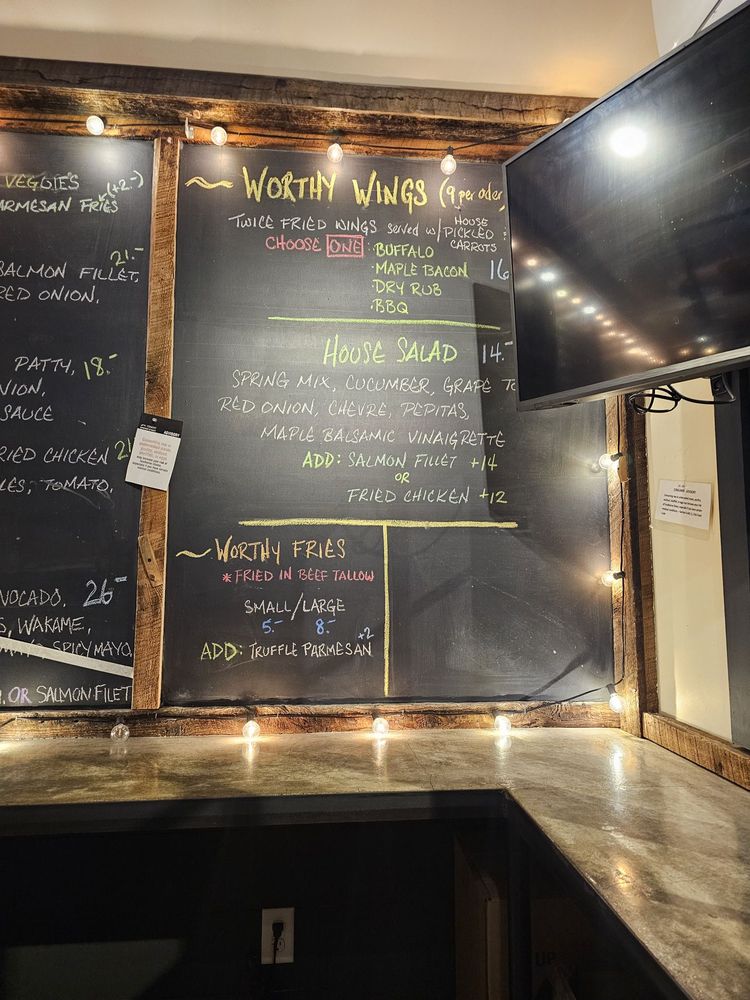 VEGGIES
(+2.-)
PARMESAN FRIES
21.-
SALMON FILLET,
RED ONION,
PATTY, 18.-
SAUCE
FRIED CHICKEN
TOMATO,
AVOCADO, 26-
WAKAME,
SPICY MAYO
OR SALMON FILET
~ WORTHY WINGS (9 per oder
TWICE FRIED WINGS served w/ HOUSE PICKLED CARROTS
CHOOSE ONE:
· BUFFALO
· MAPLE BACON 16
· DRY RUB
· BBQ
HOUSE SALAD 14.-
SPRING MIX, CUCUMBER, GRAPE
RED ONION, CHEVRE, PEPITAS,
MAPLE BALSAMIC VINAIGRETTE
ADD: SALMON FILLET +14
OR
FRIED CHICKEN +12
~ WORTHY FRIES
* FRIED IN BEEF TALLOW
SMALL/LARGE
5.- 8.-
ADD: TRUFFLE PARMESAN +2